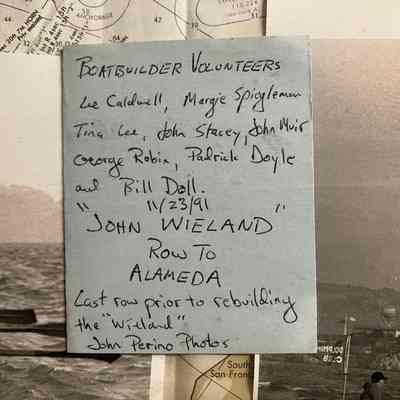 BOATBUILDER VOLUNTEERS
Lee Caldwell, Margie Spiegleman
Tina Lee, John Stacey, John Muir
George Robin, Padrick Doyle
and Bill Doll.
11/23/91
"JOHN WIELAND"
ROW TO
ALAMEDA
Last row prior to rebuilding
the "Wieland"
John Perino Photos
ANCHORAGE
South
San Franc